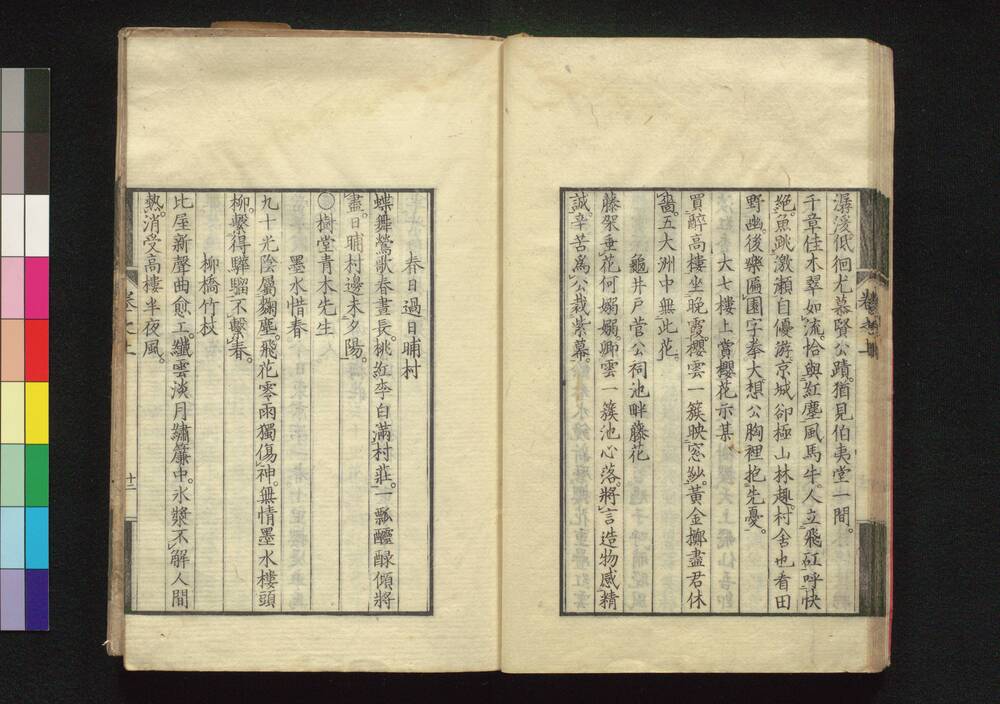 潺湲低徊尤慕賢公蹟。猶見伯夷堂一間。
千章佳木翠如流。恰與紅塵風馬牛。人立飛矼呼快
絶。魚跳激瀬自優游。京城卻極山林趣。村舍也看田
野幽。後樂匾園字拳大。想公胸裡抱先憂。
大七樓上賞櫻花示某
買醉高樓坐晩霞。櫻雲一簇映窓紗。黃金擲盡君休
嗇。五大洲中無此花。
龜井戸菅公祠池畔藤花
藤架垂花何嫋嫋。卿雲一簇池心落。將言造物感精
誠。辛苦爲公裁紫幕。
春日過日晡村
蝶舞鶯歌春晝長。桃紅李白滿村莊。一瓢醽醁傾將
盡。日晡村邊未夕陽。
○樹堂青木先生
墨水惜春
九十光陰屬麴塵。飛花零雨獨傷神。無情墨水樓頭
柳。繫得驊騮不繫春。
柳橋竹枝
比屋新聲曲愈工。纖雲淡月繡簾中。氷漿不解人間
熱。消受高樓半夜風。
卷之上
十二